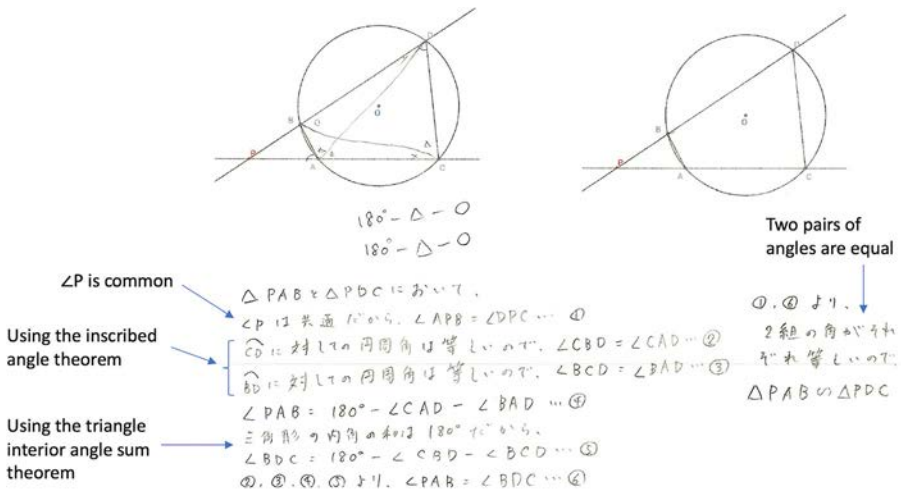 D
B
O
O
P
A
C
D
B
O
P
A
C
180°-△-○
180°-△-○
∠P is common
Using the inscribed
angle theorem
Using the triangle
interior angle sum
theorem
△PABと△PDCにおいて、
∠Pは共通だから、∠APB=∠DPC…①
CDに対しての円周角は等しいので、∠CBD=∠CAD…②
BDに対しての円周角は等しいので、∠BCD=∠BAD…③
∠PAB=180°-∠CAD-∠BAD…④
三角形の内角の和は180°だから、
∠BDC=180°-∠CBD-∠BCD…⑤
②,③,④,⑤より、∠PAB=∠BDC…⑥
Two pairs of
angles are equal
①,⑥より、
2組の角がそれ
ぞれ等しいので
△PAB∽△PDC